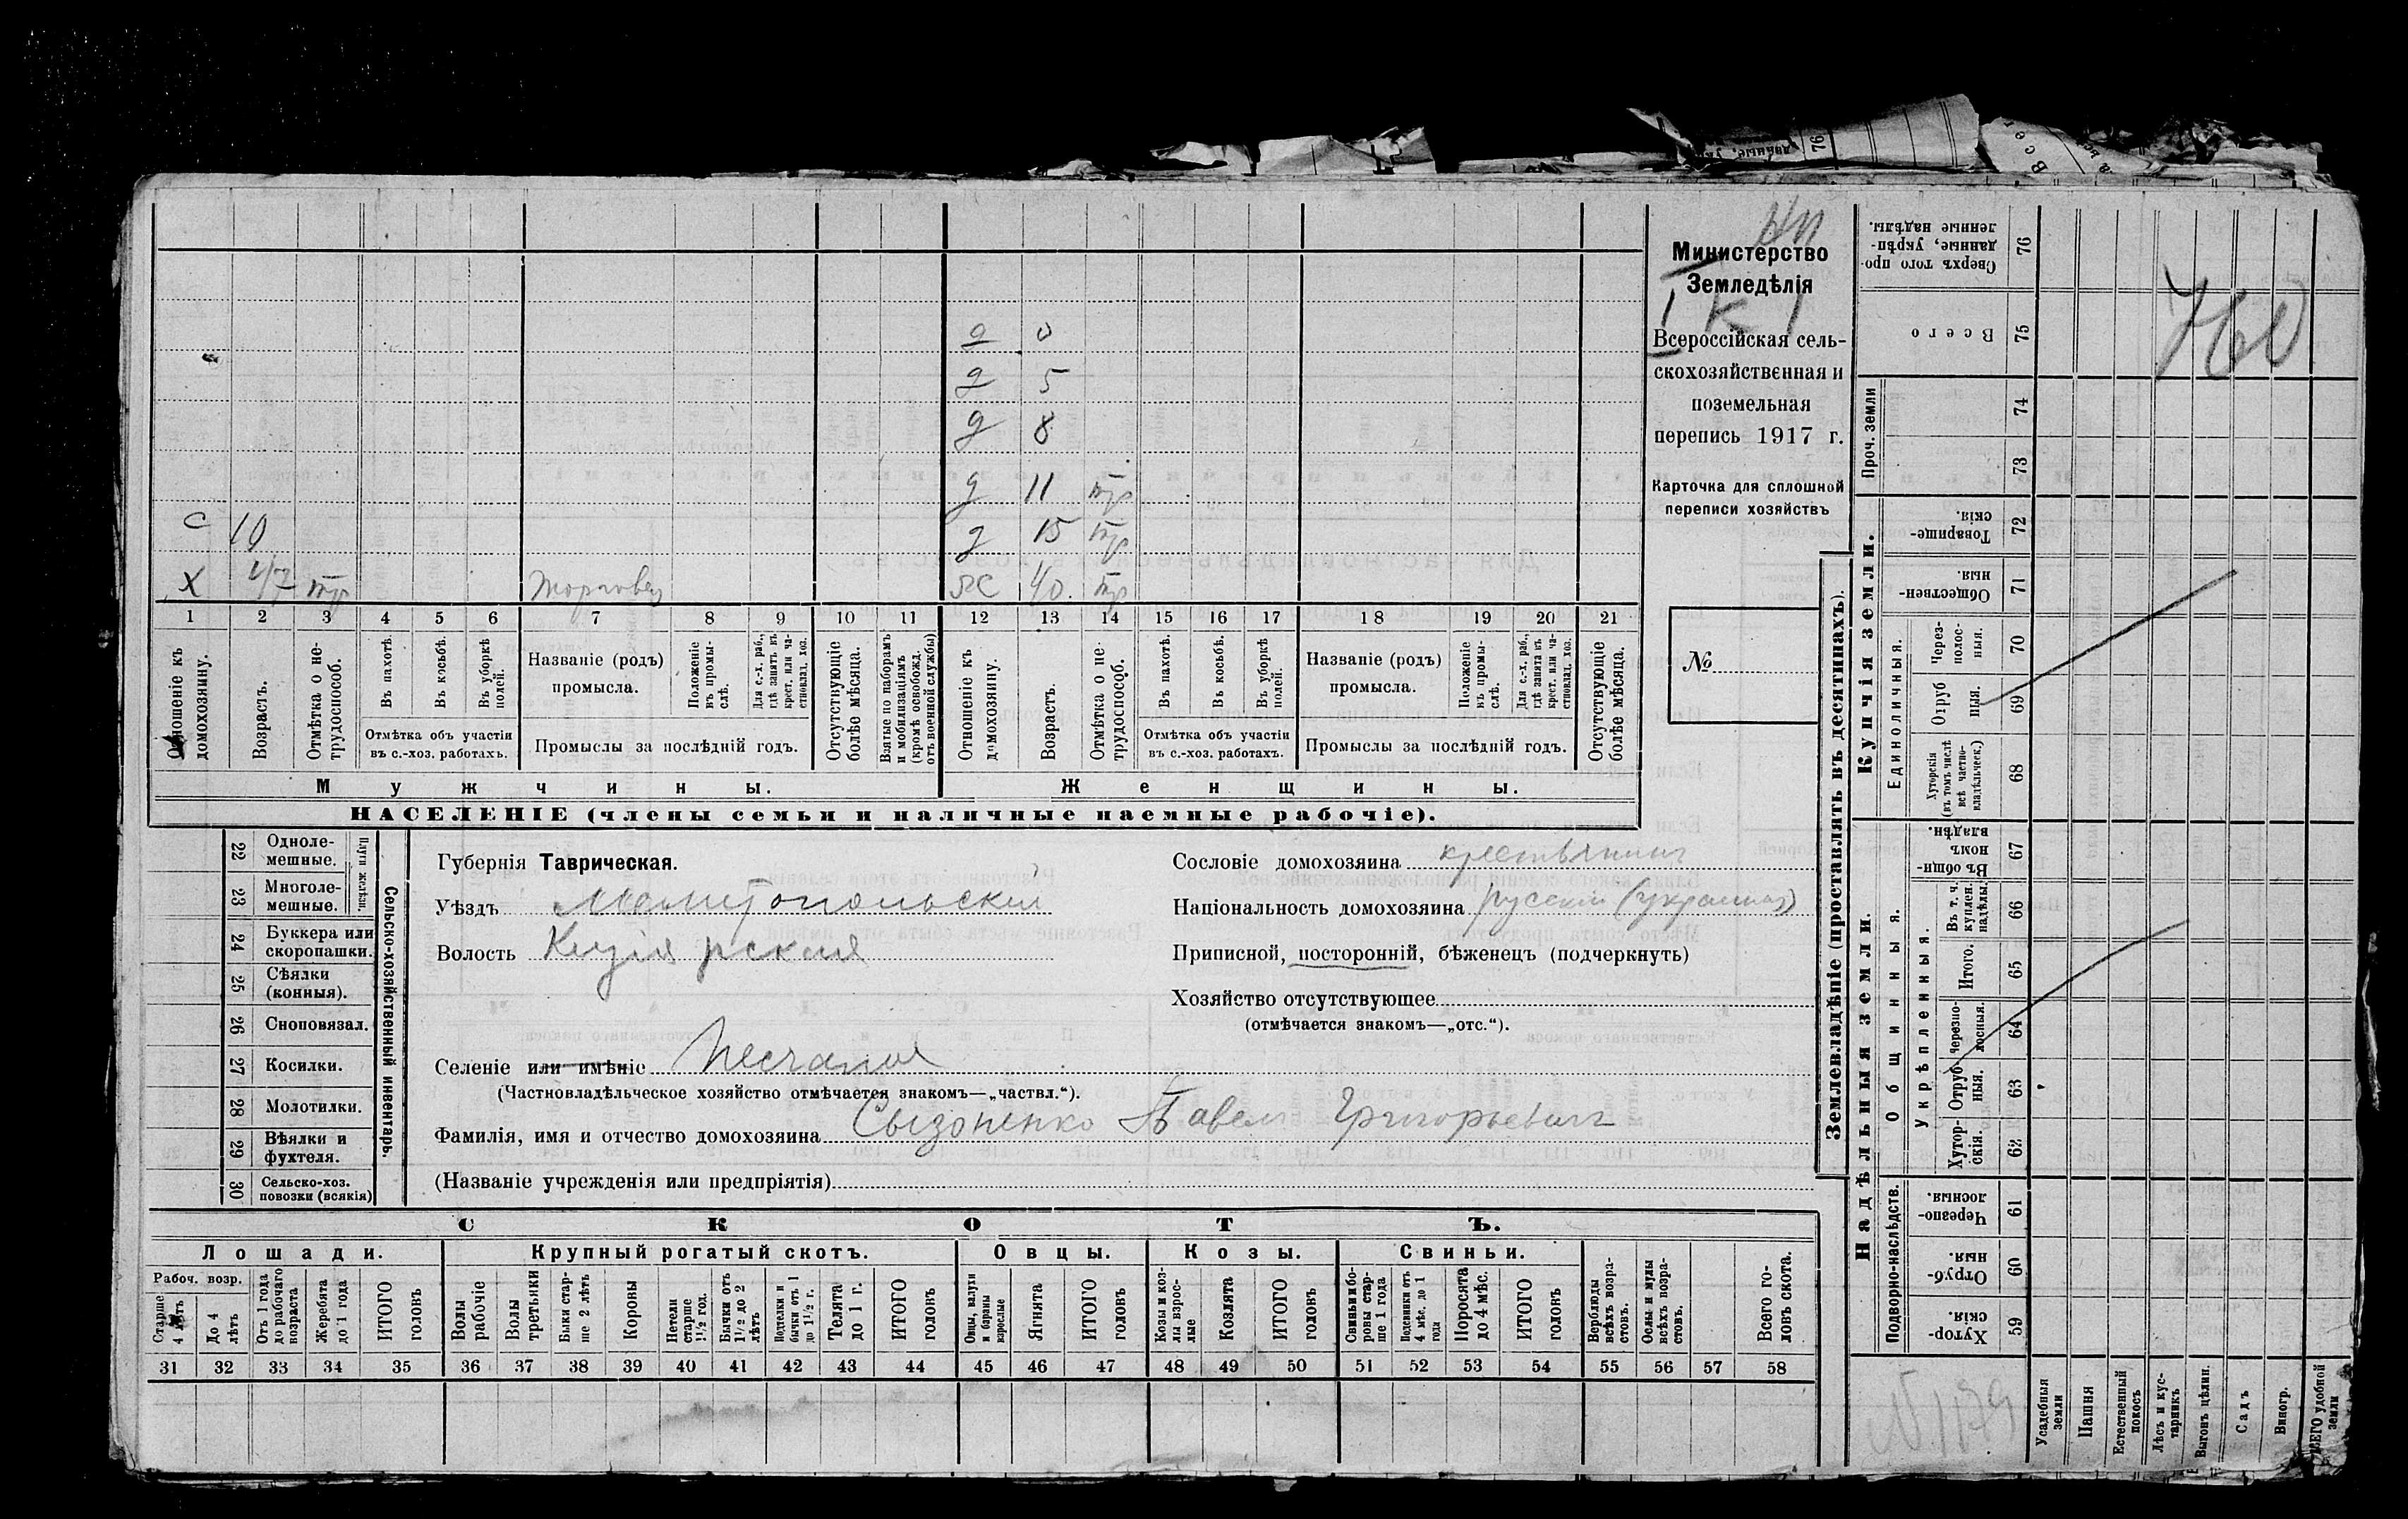 Министерство
Земледѣлія
I К I
Всероссійская сель-
скохозяйственная и
поземельная
перепись 1917 г.
Карточка для сплошной
переписи хозяйствъ
№
д 0
д 5
д 8
д 11 тр
с 10 д 15 тр
х 47 тр торговец ж 40 тр
1 2 3 4 5 6 7 8 9 10 11 12 13 14 15 16 17 18 19 20 21
Отношеніе къ домохозяину.
Возрастъ.
Отмѣтка о не-трудоспособ.
Въ пахотѣ.
Въ косьбѣ.
Въ уборкѣ полей.
Отмѣтка объ участіи
въ с.-хоз. работахъ.
Названіе (родъ)
промысла.
Положеніе въ промы-слѣ.
Для с.-х. раб., гдѣ занятъ въ крест. или ча-стновлад. хоз.
Промыслы за послѣдній годъ.
Отсутствующіе болѣе мѣсяца.
Взятые по наборамъ и мобилизаціямъ (кромѣ освобожд. отъ военной службы)
Отношеніе къ домохозяину.
Возрастъ.
Отмѣтка о не-трудоспособ.
Въ пахотѣ.
Въ косьбѣ.
Въ уборкѣ полей.
Отмѣтка объ участіи
въ с.-хоз. работахъ.
Названіе (родъ)
промысла.
Положеніе въ промы-слѣ.
Для с.-х. раб., гдѣ занята въ крест. или ча-стновлад. хоз.
Промыслы за послѣдній годъ.
Отсутствующіе болѣе мѣсяца.
Мужчины. Женщины.
НАСЕЛЕНІЕ (члены семьи и наличные наемные рабочіе).
22 Одноле-мешные.
23 Многоле-мешные.
Плуги желѣзн.
24 Буккера или скоропашки.
25 Сѣялки (конныя).
26 Сноповязал.
27 Косилки.
28 Молотилки.
29 Вѣялки и фухтеля.
30 Сельско-хоз. повозки (всякія)
Сельско-хозяйственный инвентарь.
Губернія Таврическая.
Уѣздъ Мелитопольскій
Волость Кизіярская
Селеніе или имѣніе Песчаная
(Частновладѣльческое хозяйство отмѣчается знакомъ—„частвл.“).
Фамилія, имя и отчество домохозяина Сызоненко Павел Григорьевич
(Названіе учрежденія или предпріятія)
Сословіе домохозяина крестьянин
Національность домохозяина русскій (украинец)
Приписной, посторонній, бѣженецъ (подчеркнуть)
Хозяйство отсутствующее
(отмѣчается знакомъ—„отс.“).
СКОТЪ.
Лошади. Крупный рогатый скотъ. Овцы. Козы. Свиньи.
Рабоч. возр.
Старше 4 лѣтъ
До 4 лѣтъ
Отъ 1 года до рабочаго возраста
Жеребята до 1 года
ИТОГО головъ
Волы рабочіе
Волы третьяки
Быки стар-ше 2 лѣтъ
Коровы
Нетели старше 1½ год.
Бычки отъ 1½ до 2 лѣтъ
Подтелки и бычки отъ 1 до 1½ г.
Телята до 1 г.
ИТОГО головъ
Овцы, валухи и бараны взрослые
Ягнята
ИТОГО головъ
Козы и коз-лы взрос-лые
Козлята
ИТОГО головъ
Свиньи и бо-ровы стар-ше 1 года
Подсвинки отъ 4 мѣс. до 1 года
Поросята до 4 мѣс.
ИТОГО головъ
Верблюды всѣхъ возра-стовъ.
Ослы и мулы всѣхъ возра-стовъ.
Всего го-ловъ скота.
31 32 33 34 35 36 37 38 39 40 41 42 43 44 45 46 47 48 49 50 51 52 53 54 55 56 57 58
Землевладѣніе (проставлять въ десятинахъ).
Купчія земли.
Надѣльныя земли.
Сверхъ того про-данные, укрѣп-ленные надѣлы. 76
Всего 75
Проч. земли 74
73
Товарище-скія. 72
Обществен-ныя. 71
Единоличныя.
Через-полос-ныя. 70
Отруб-ныя. 69
Хуторскія (въ томъ числѣ всѣ частно-владѣльческ.) 68
Общинныя.
Въ общин-номъ владѣн. 67
Укрѣпленныя.
Въ т. ч. куплен. надѣлы. 66
Итого. 65
Черезпо-лосныя. 64
Отруб-ныя. 63
Хутор-скія. 62
Подворно-наслѣдств.
Черезпо-лосныя. 61
Отруб-ныя. 60
Хутор-скія. 59
Усадебныя земли
Пашня
Естественный покосъ
Лѣсъ и кус-тарникъ
Выгонъ цѣлин.
Садъ
Виногр.
ВСЕГО удобной земли